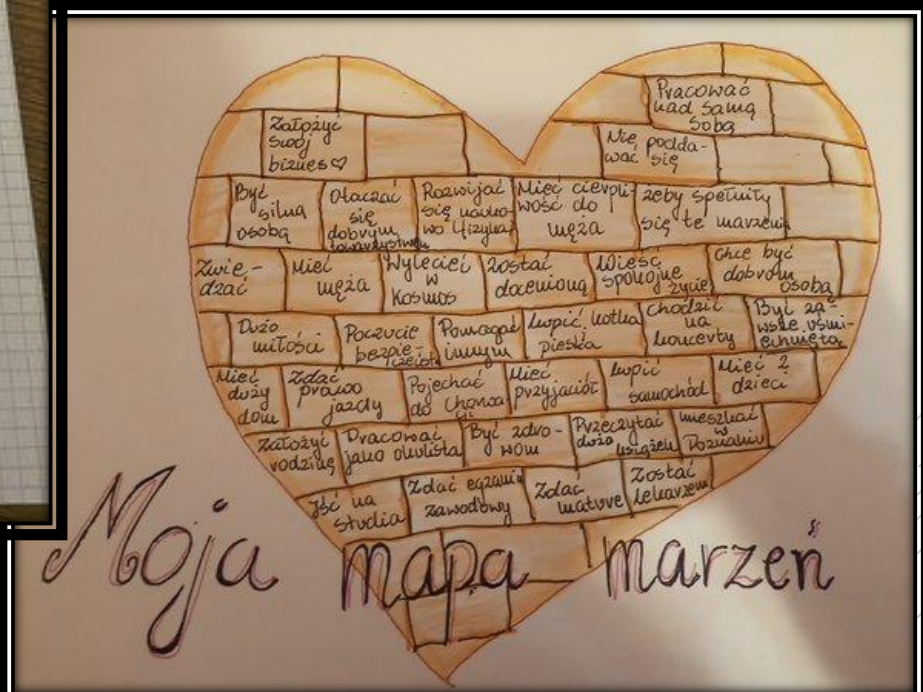 Pracować
nad samą
sobą
Założyć
swój
biznes♡
Nie podda-
wać się
Być
silną
osobą
Otaczać
się
dobrym
towarzystwem
Rozwijać
się nauko-
wo i fizycz
Mieć cierpli-
wość do
męża
żeby spełniły
się te marzenia
Zwie-
dzać
Mieć
męża
Wylecieć
w
Kosmos
Zostać
docenioną
Wieść
spokojne
życie
Chcę być
dobrom
osobą
Dużo
miłości
Poczucie
bezpie-
czeńst
Pomagać
innym
kupić kotka
pieska
Chodzić
na
koncerty
Być za-
wsze uśmi-
echniętą
Mieć
duży
dom
Zdać
prawo
jazdy
Pojechać
do Chorwa
cji
Mieć
przyjaciół
kupić
samochód
Mieć 2
dzieci
Założyć
rodzinę
Pracować
jako okulista
Być zdro-
wom
Przeczytać
dużo
książek
mieszkać
w
Poznaniu
Iść na
studia
Zdać egzamin
zawodowy
Zdać
mature
Zostać
lekarzem
Moja mapa marzeń